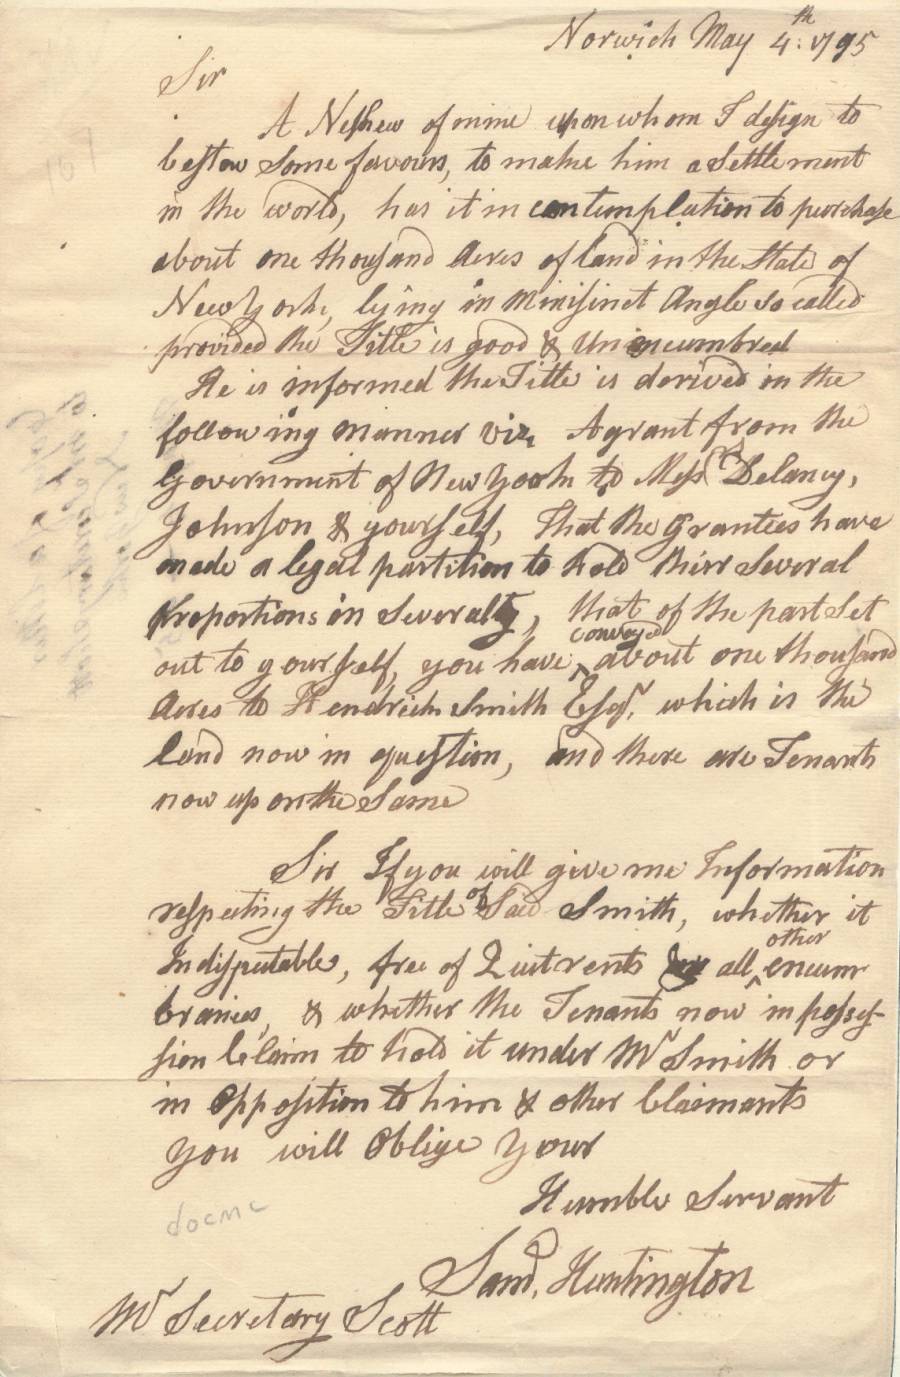 Norwich May 4:th 1795
Sir
A Nephew of mine upon whom I design to
bestow Some favours, to make him a Settlement
in the world, has it in contemplation to purchase
about one thousand Acres of land in the State of
New York, lying in Minisinct Angle so called
provided the Title is good & Unincumbred
He is informed the Title is derived in the
following manner viz. A grant from the
Government of New York to Messrs Delancy,
Johnson & yourself, That the Grantees have
made a legal partition to hold their Several
Proportions in Severalty, that of the part Set
out to yourself, you have conveyed about one thousand
Acres to Hendrick Smith Esqr. which is the
land now in question, and there are Tenants
now up on the Same
Sir If you will give me Information
respecting the Title of Said Smith, whether it
Indisputable, free of Quitrents all other encum
brances, & whether the Tenants now in posses-
sion Claim to hold it under Mr Smith or
in Opposition to him & other Claimants
You will Oblige Your
Humble Servant
Saml. Huntington
Mr Secretary Scott
docmc
107